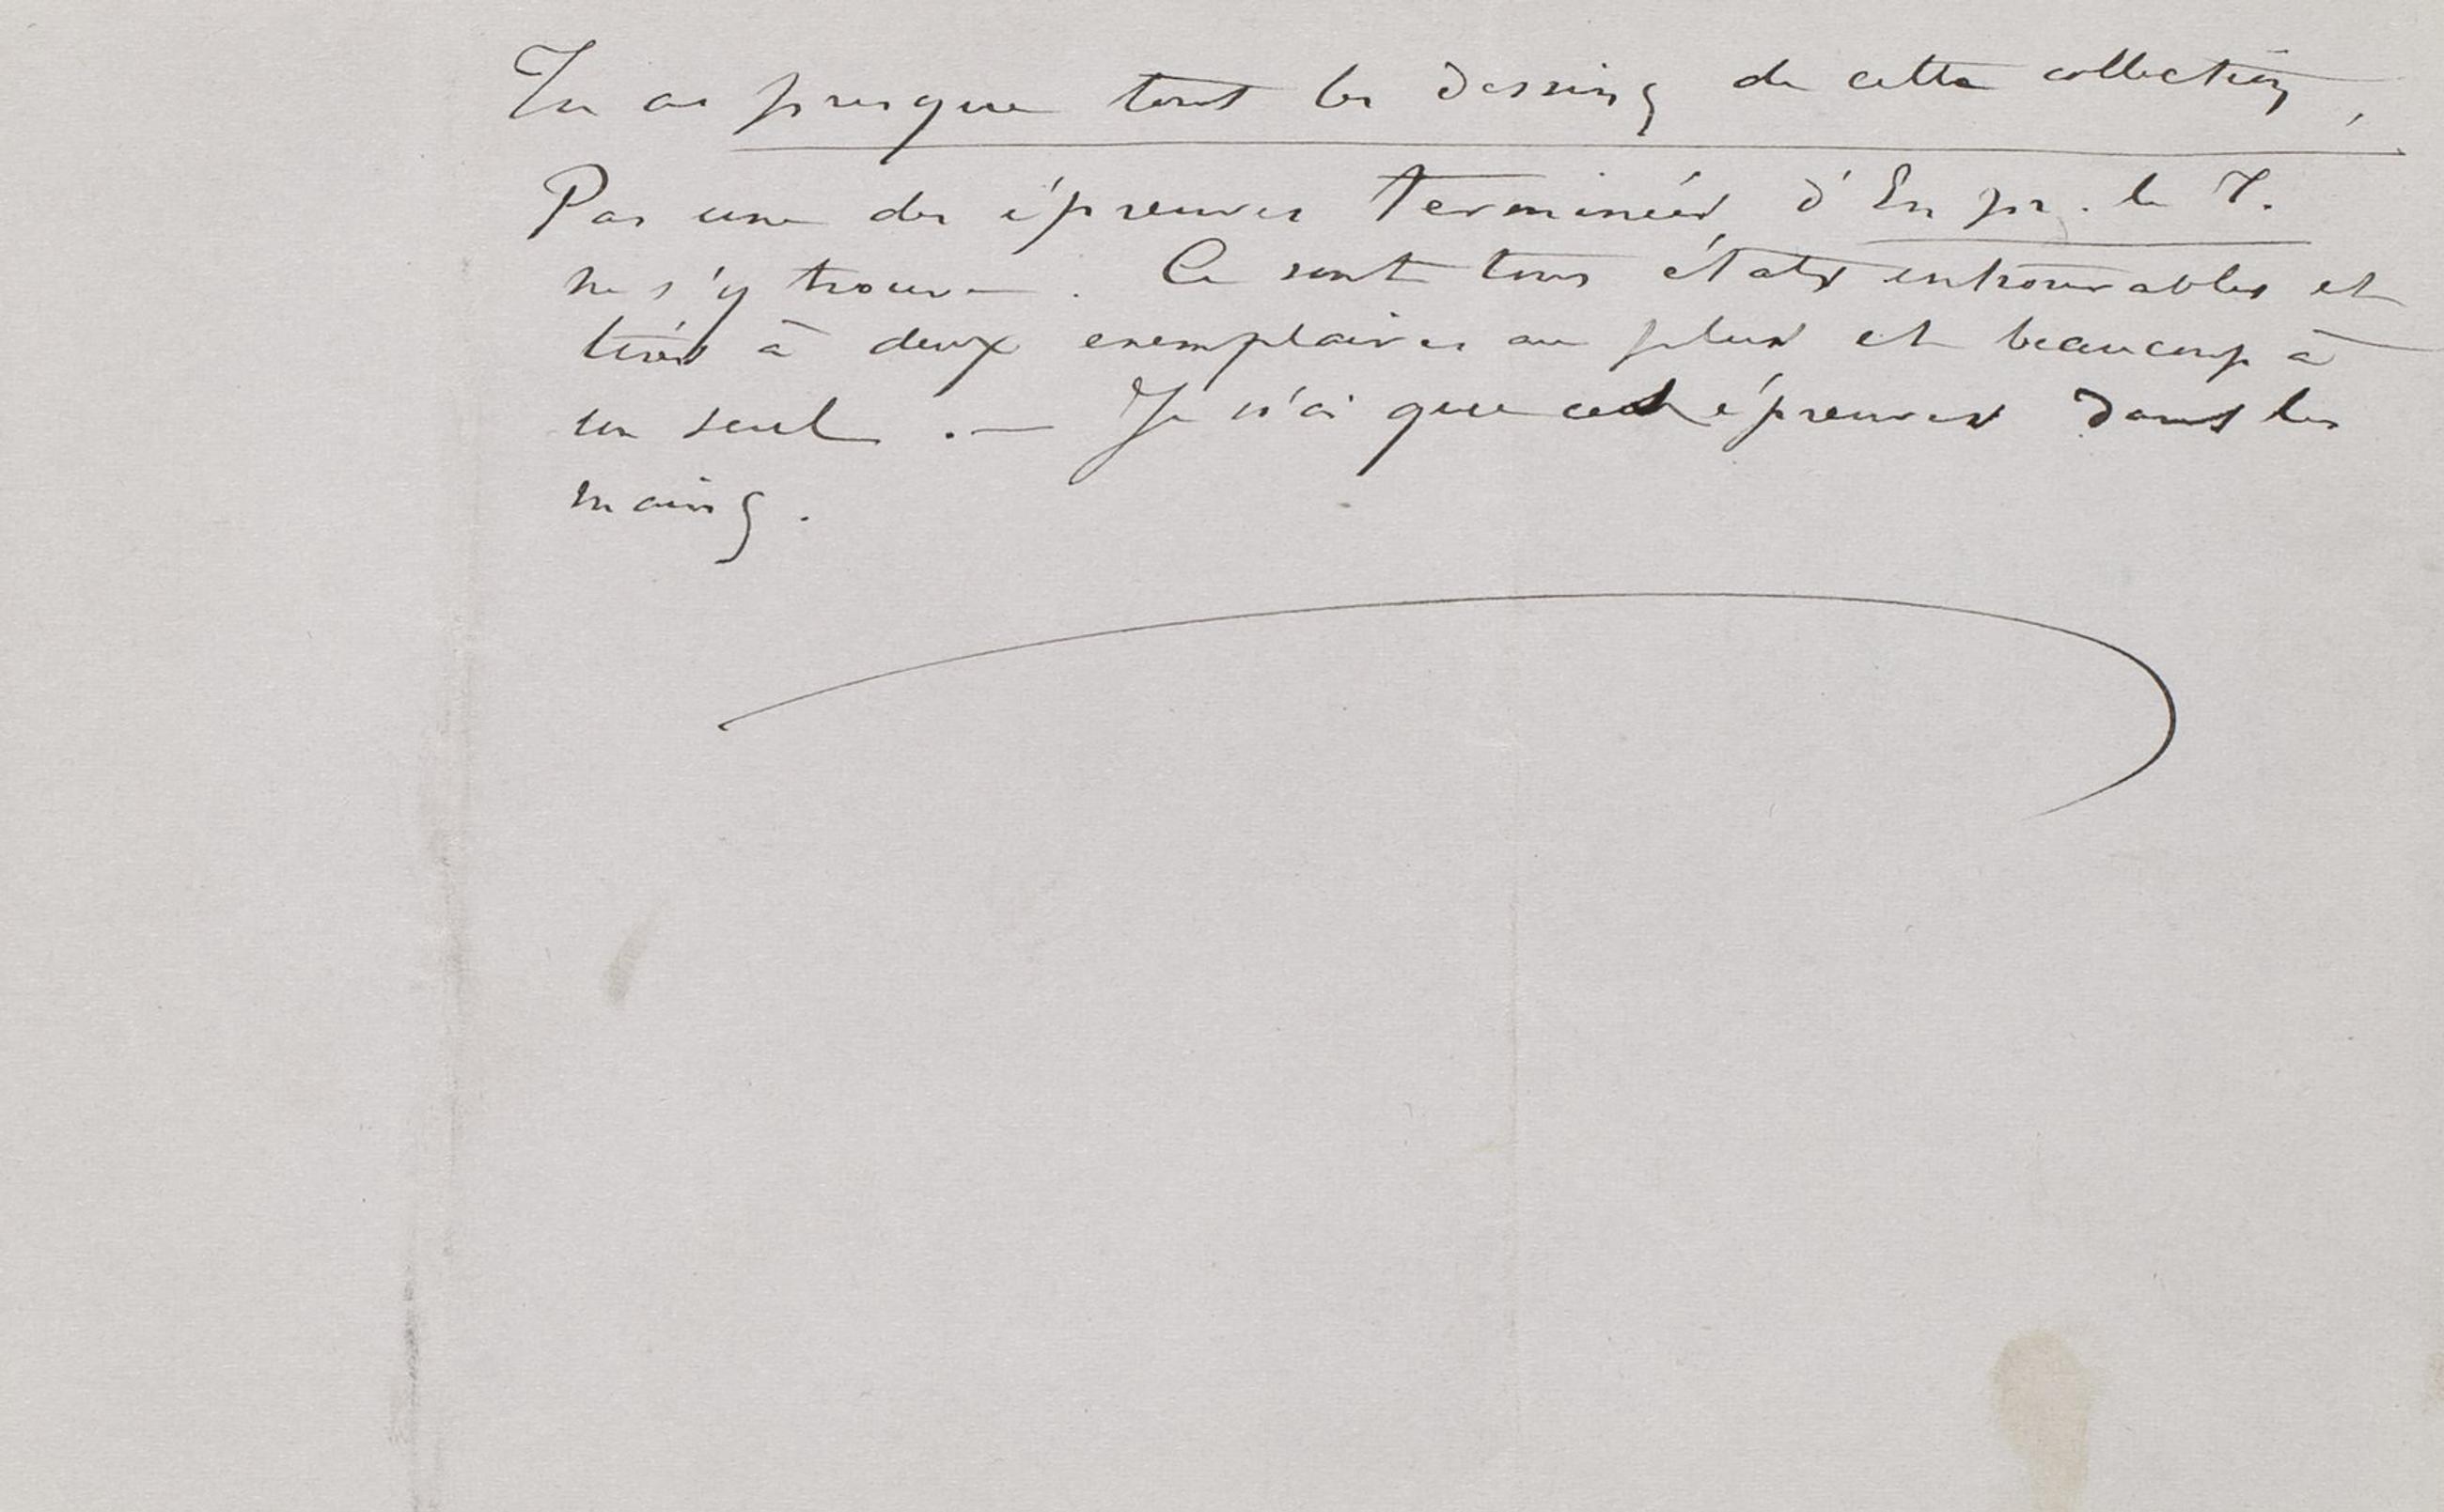 Tu as presque tous les dessins de cette collection,
Pas une des épreuves terminées d'En pr. le T.
ne s'y trouve. Ce sont tous états introuvables et
tirés à deux exemplaires au plus et beaucoup à
un seul. — Je n'ai que ces épreuves dans les
mains.